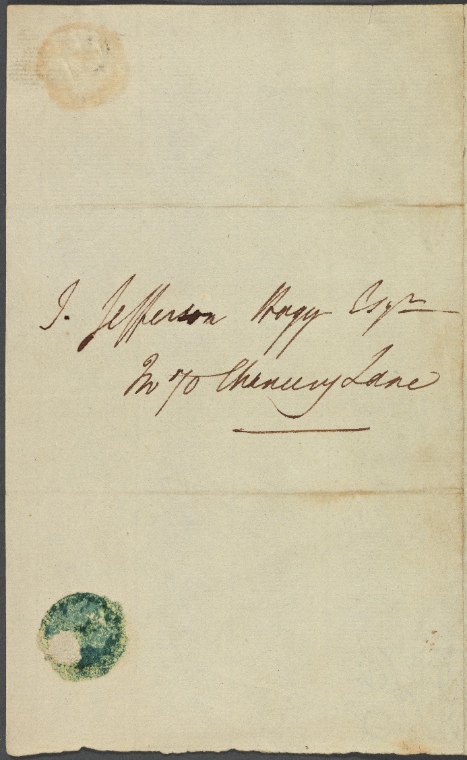 J. Jefferson Hogg Esqr
No 70 Chancery Lane